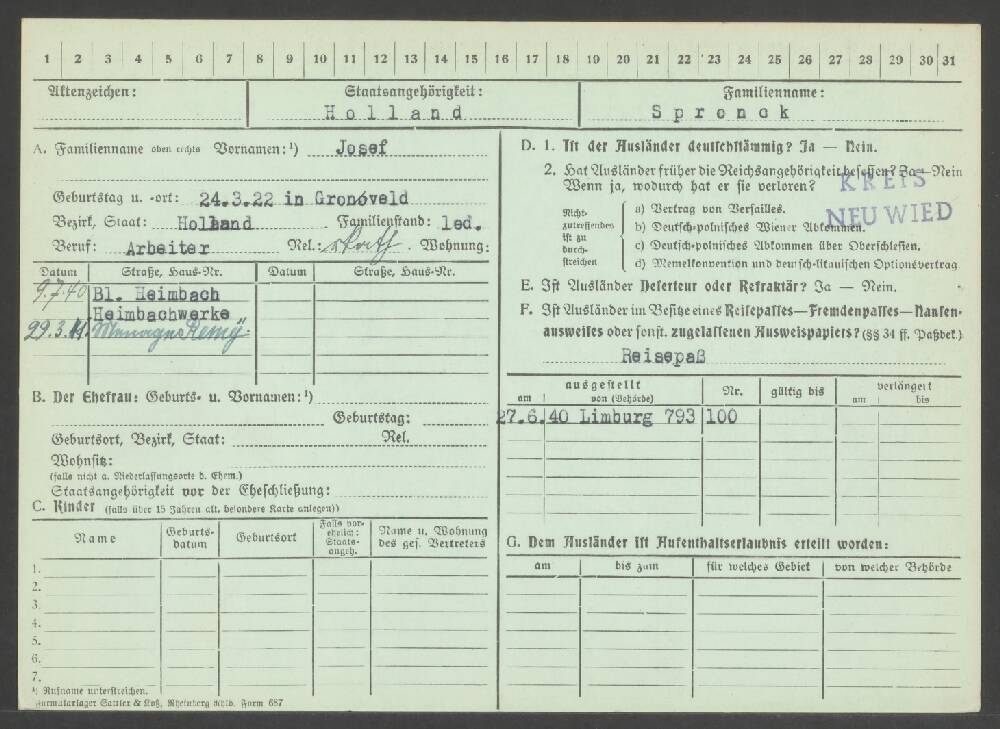 1 2 3 4 5 6 7 8 9 10 11 12 13 14 15 16 17 18 19 20 21 22 23 24 25 26 27 28 29 30 31
Aktenzeichen:
Staatsangehörigkeit:
Holland
Familienname:
Spronck
A. Familienname oben rechts Vornamen:¹) Josef
Geburtstag u. -ort: 24.3.22 in Gronóveld
Bezirk, Staat: Holland Familienstand: led.
Beruf: Arbeiter Rel.: r. kath. Wohnung:
Datum Straße, Haus-Nr. Datum Straße, Haus-Nr.
9.7.40 Bl. Heimbach
Heimbachwerke
29.3.41. Menage Remy
B. Der Ehefrau: Geburts- u. Vornamen:¹)
Geburtstag:
Geburtsort, Bezirk, Staat: Rel.
Wohnsitz:
(falls nicht a. Niederlassungsorte d. Ehem.)
Staatsangehörigkeit vor der Eheschließung:
C. Kinder (falls über 15 Jahren alt, besondere Karte anlegen))
Name
Geburts-
datum
Geburtsort
Falls vor-
ehelich:
Staats-
angeh.
Name u. Wohnung
des ges. Vertreters
1.
2.
3.
4.
5.
6.
7.
¹) Rufname unterstreichen.
Formularlager Sattler & Koß, Rheinberg Rhld. Form 687
D. 1. Ist der Ausländer deutschstämmig? Ja — Nein.
2. Hat Ausländer früher die Reichsangehörigkeit besessen? Ja—Nein
Wenn ja, wodurch hat er sie verloren?
KREIS
NEUWIED
Nicht-
zutreffendes
ist zu
durch-
streichen
a) Vertrag von Versailles.
b) Deutsch-polnisches Wiener Abkommen.
c) Deutsch-polnisches Abkommen über Oberschlesien.
d) Memelkonvention und deutsch-litauischen Optionsvertrag
E. Ist Ausländer Deserteur oder Refraktär? Ja — Nein.
F. Ist Ausländer im Besitze eines Reisepasses—Fremdenpasses—Nansen-
ausweises oder sonst. zugelassenen Ausweispapiers? (§§ 34 ff. Paßbek.)
Reisepaß
ausgestellt
am von (Behörde)
Nr.
gültig bis
verlängert
am bis
27.6.40 Limburg 793 100
G. Dem Ausländer ist Aufenthaltserlaubnis erteilt worden:
am bis zum für welches Gebiet von welcher Behörde